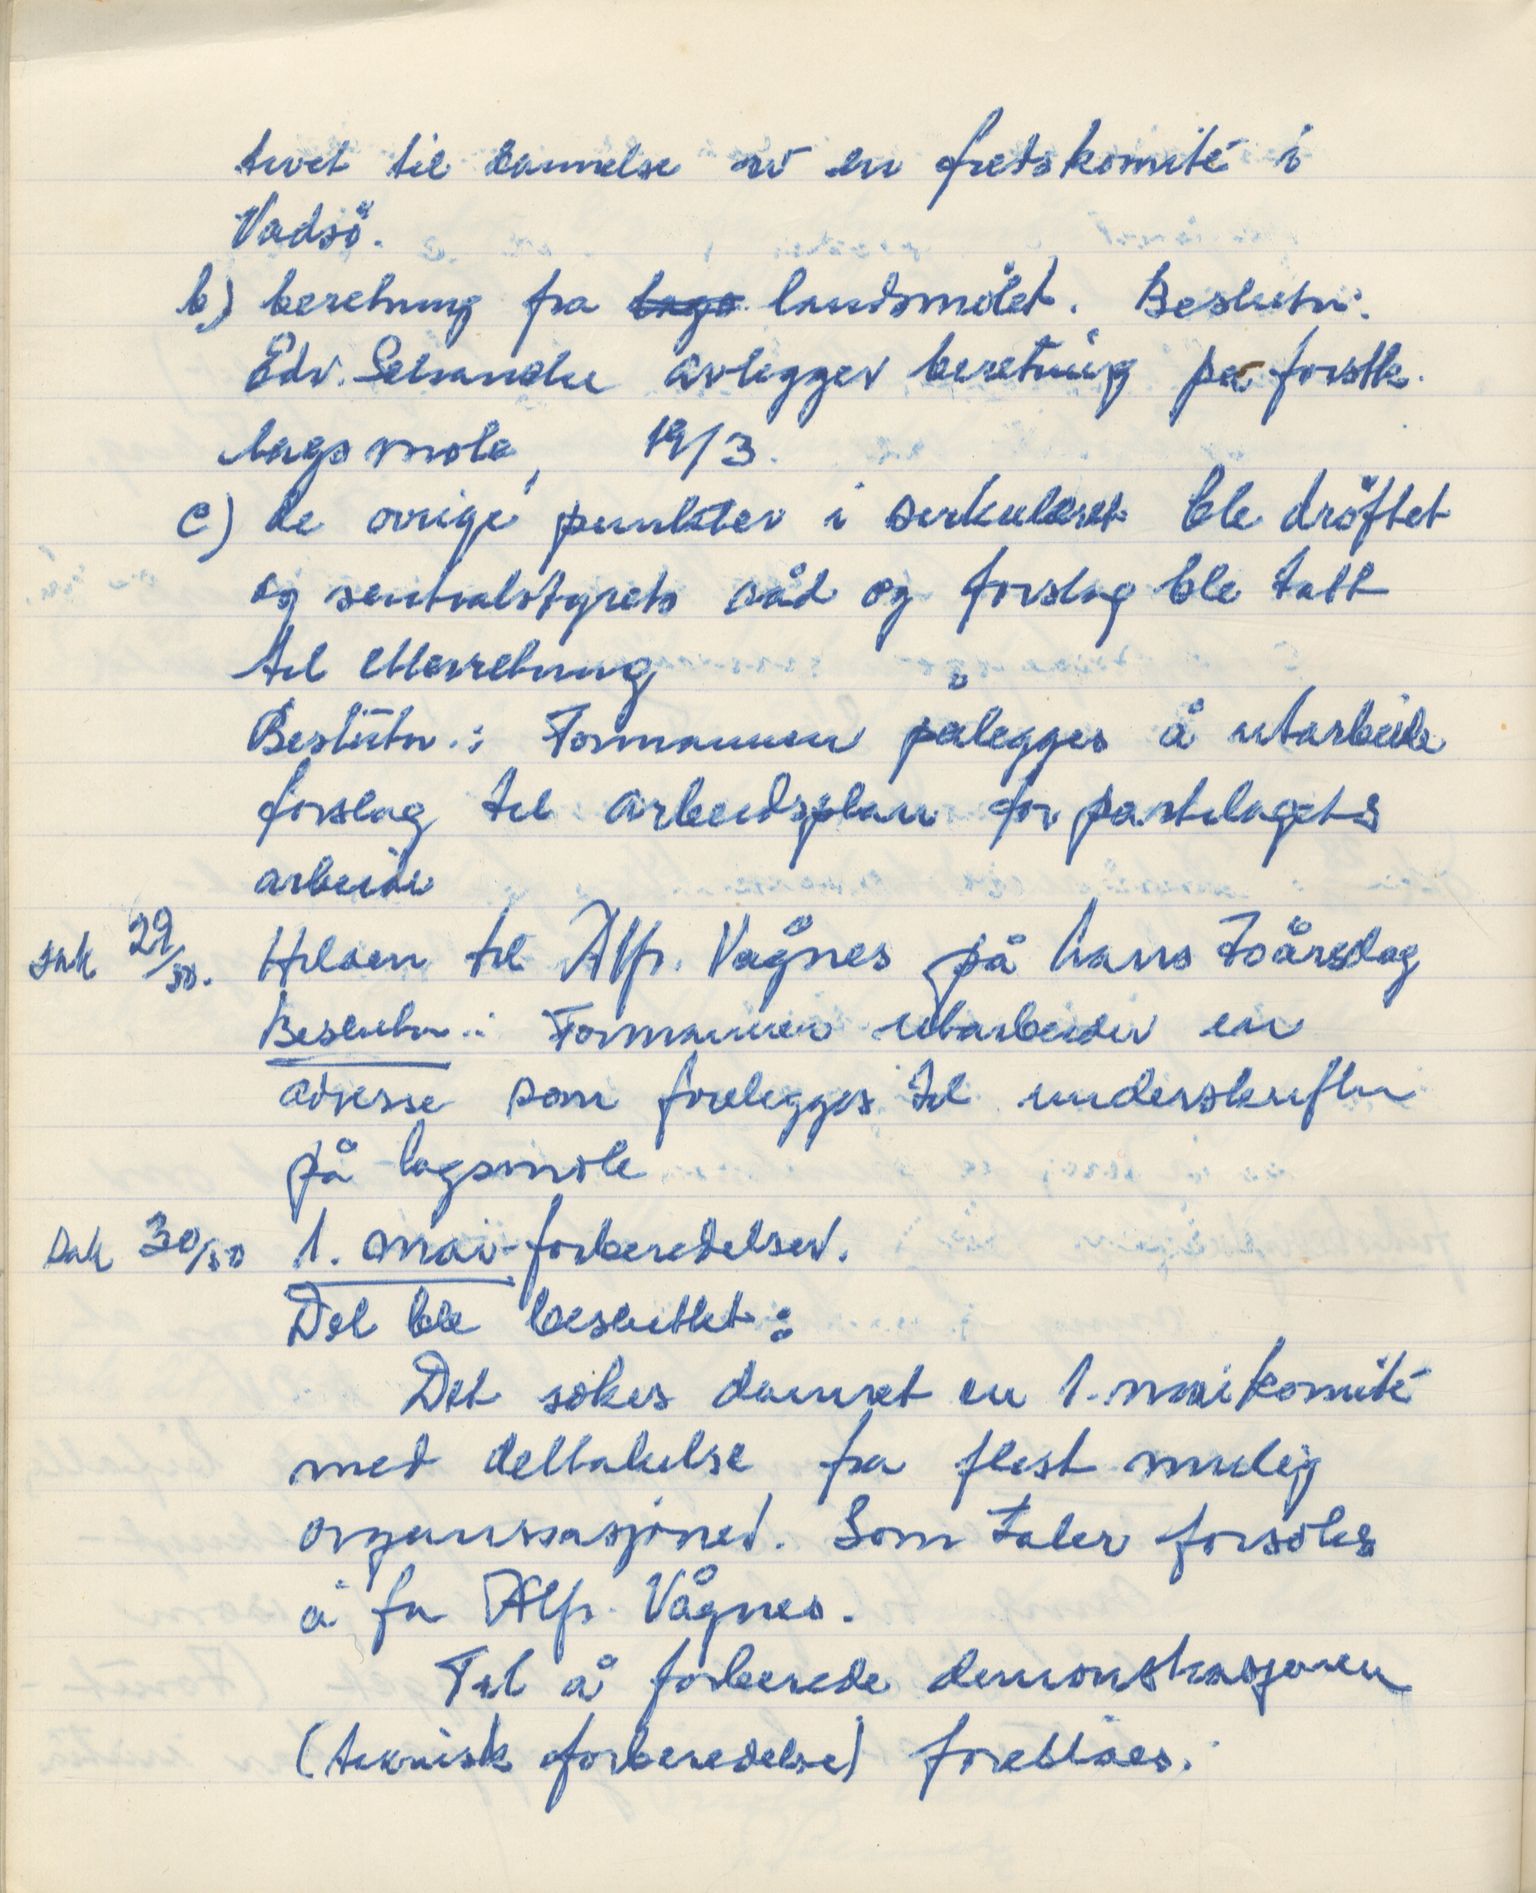 tivet til dannelse av en fredskomité i
Vadsö.
b) beretning fra lags landsmötet. Beslutn:
Edv. avlegger beretning på forstk.
lagsmöte, 19/3.
c) de ovrige punkter i serkulæret ble dröftet
og sentralstyrets råd og forslag ble tatt
til etterretning
Beslutn.: Formannen pålegges å utarbeide
forslag til arbeidsplan for partilagets
arbeide
sak 29/50. Hilsen til Alfr. Vågnes på hans 70årsdag
Beslutn.: Formannen utarbeider en
adresse som forelegges til underskrifter
på lagsmöte
Sak 30/50 1. mai-forberedelser.
Det ble besluttet:
Det sökes dannet en 1. maikomité
med deltakelse fra flest mulig
organissasjoner. Som taler forsökes
å få Alfr. Vågnes.
Til å forberede demonstrasjonen
(teknisk forberedelse) foreslåes: